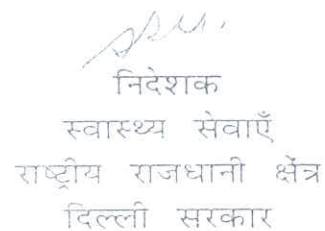 निदेशक
स्वास्थ्य सेवाएँ
राष्ट्रीय राजधानी क्षेत्र
दिल्ली सरकार